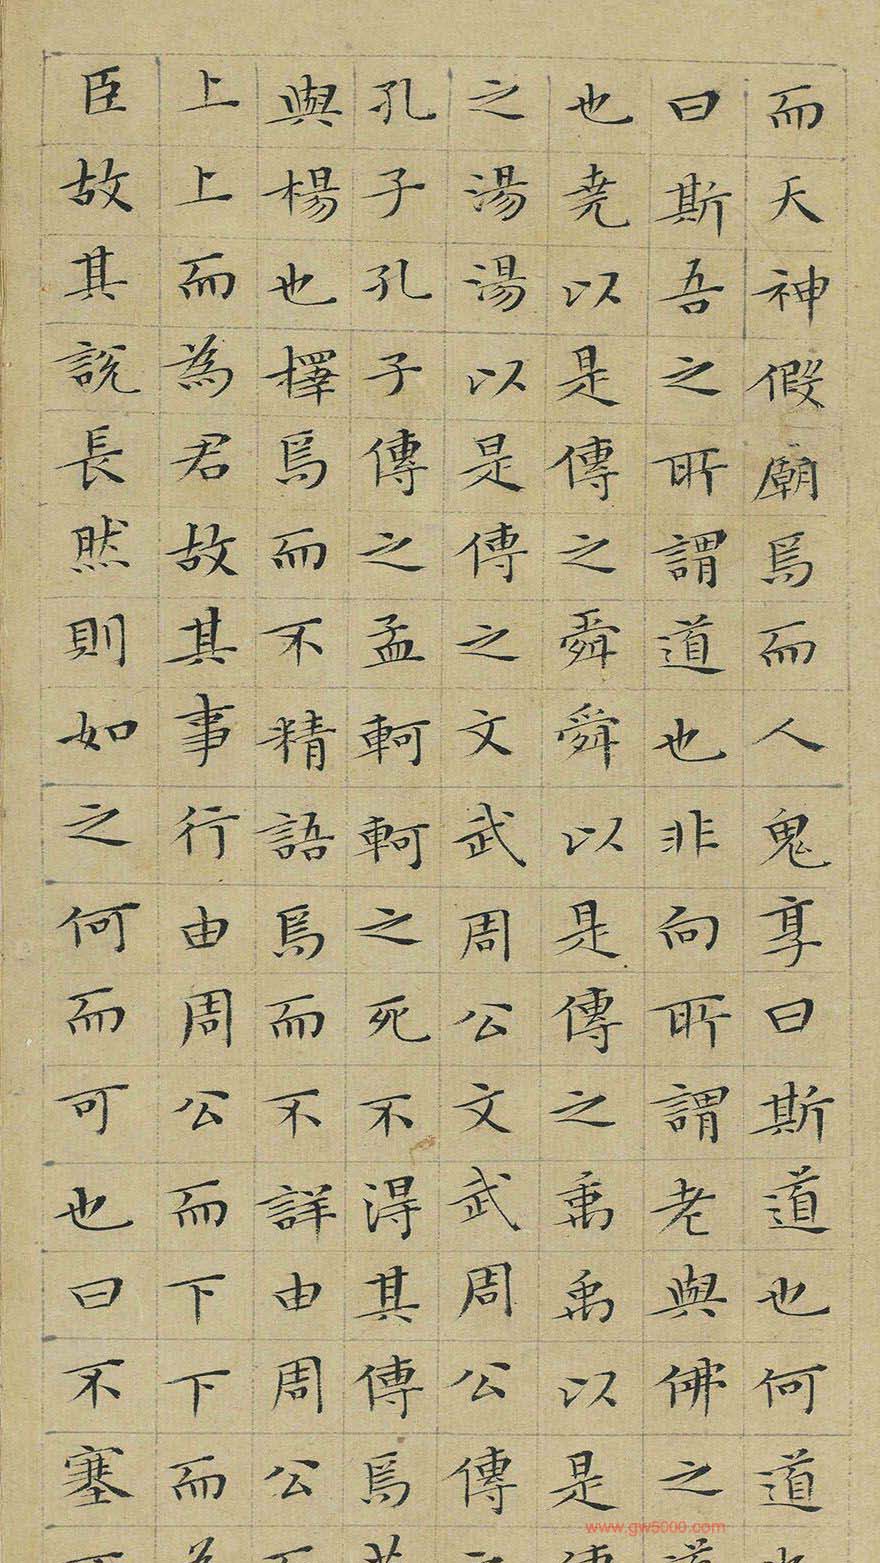 而天神假廟焉而人鬼享曰斯道也何道
曰斯吾之所謂道也非向所謂老與佛之
也堯以是傳之舜舜以是傳之禹禹以是
之湯湯以是傳之文武周公文武周公傳
孔子孔子傳之孟軻軻之死不得其傳焉
與楊也擇焉而不精語焉而不詳由周公
上上而為君故其事行由周公而下下而
臣故其說長然則如之何而可也曰不塞
www.gw5000.com